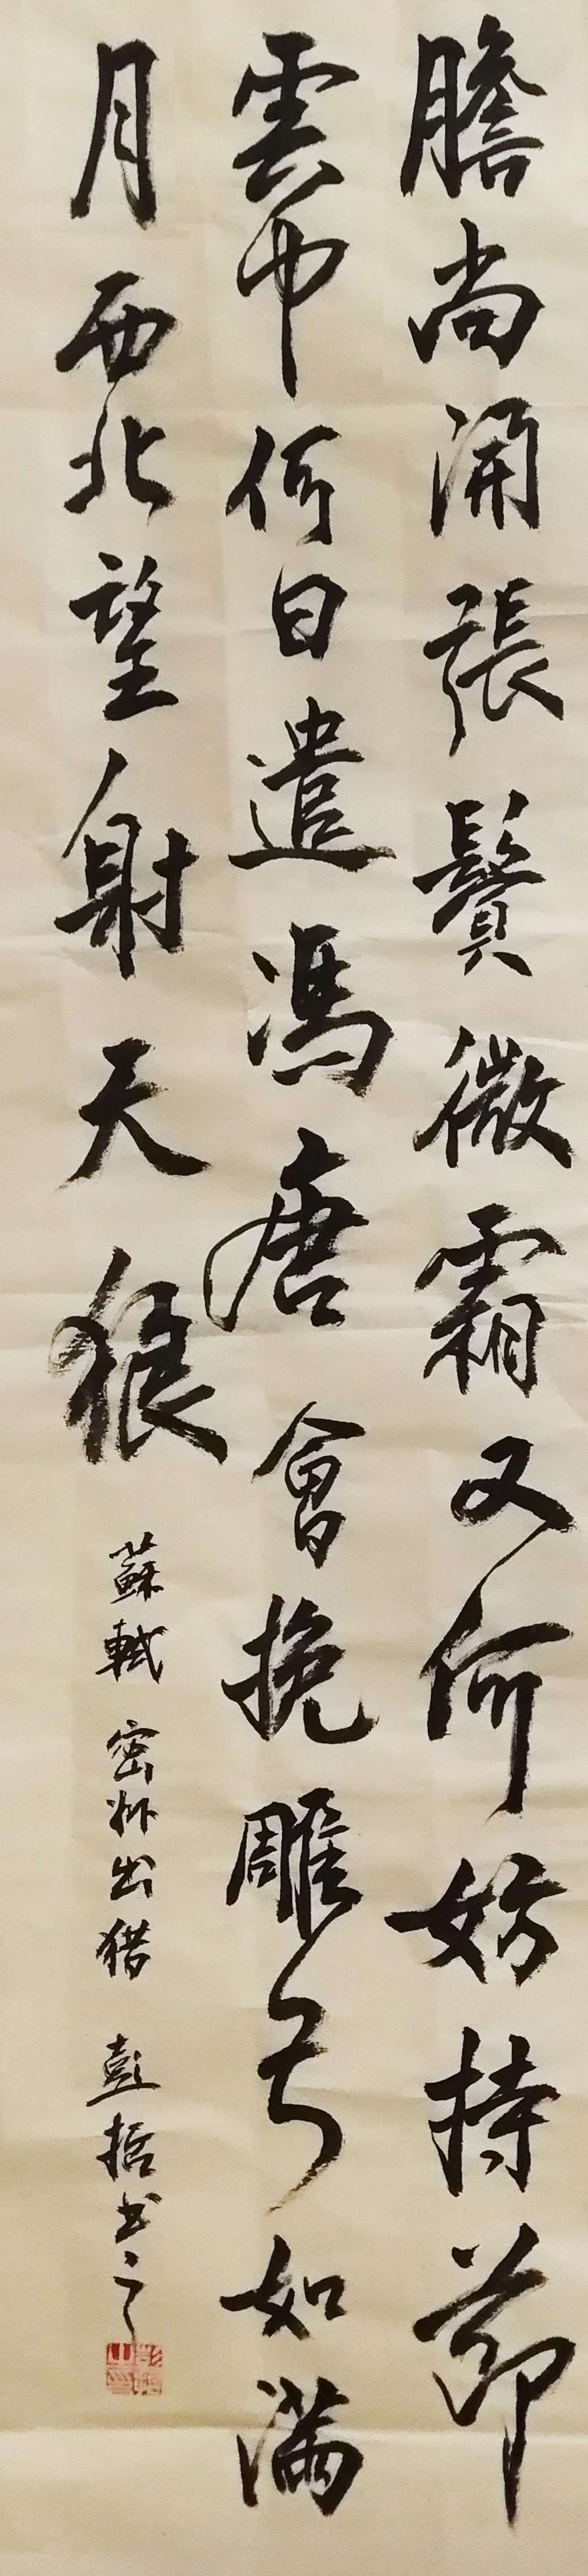 膽尚開張鬢微霜又何妨持節
雲中何日遣馮唐會挽雕弓如滿
月西北望射天狼
蘇軾 密州出猎 彭哲书之